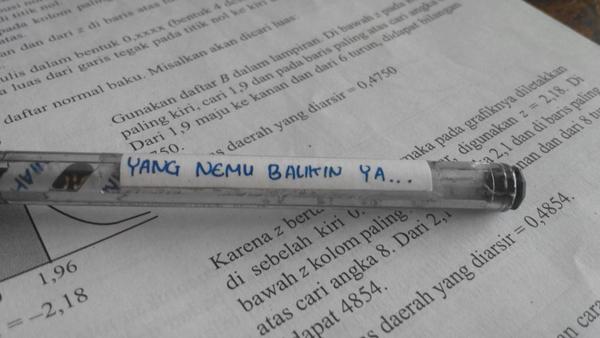 ulis dalam bentuk 0,xxxx (bentuk 4 de
luas dari garis tegak pada titik nol ke kiri
daftar normal baku. Misalkan akan dicari luas:
Gunakan daftar B dalam lampiran. Di bawah z pada
paling kiri, cari 1,9 dan pada baris paling atas cari angka
Dari 1,9 maju ke kanan dan dari 6 turun, didapat bilangan
750.
s daerah yang diarsir = 0,4750
YANG NEMU BALIKIN YA...
maka pada grafiknya diletakkan
digunakan z = 2,18. Di
2,1 dan di baris paling
nan dan dari 8 tur
Karena z bert
di sebelah kiri 0.
bawah z kolom paling
atas cari angka 8. Dari 2,1
dapat 4854.
s daerah yang diarsir = 0,4854.
1,96
= -2,18